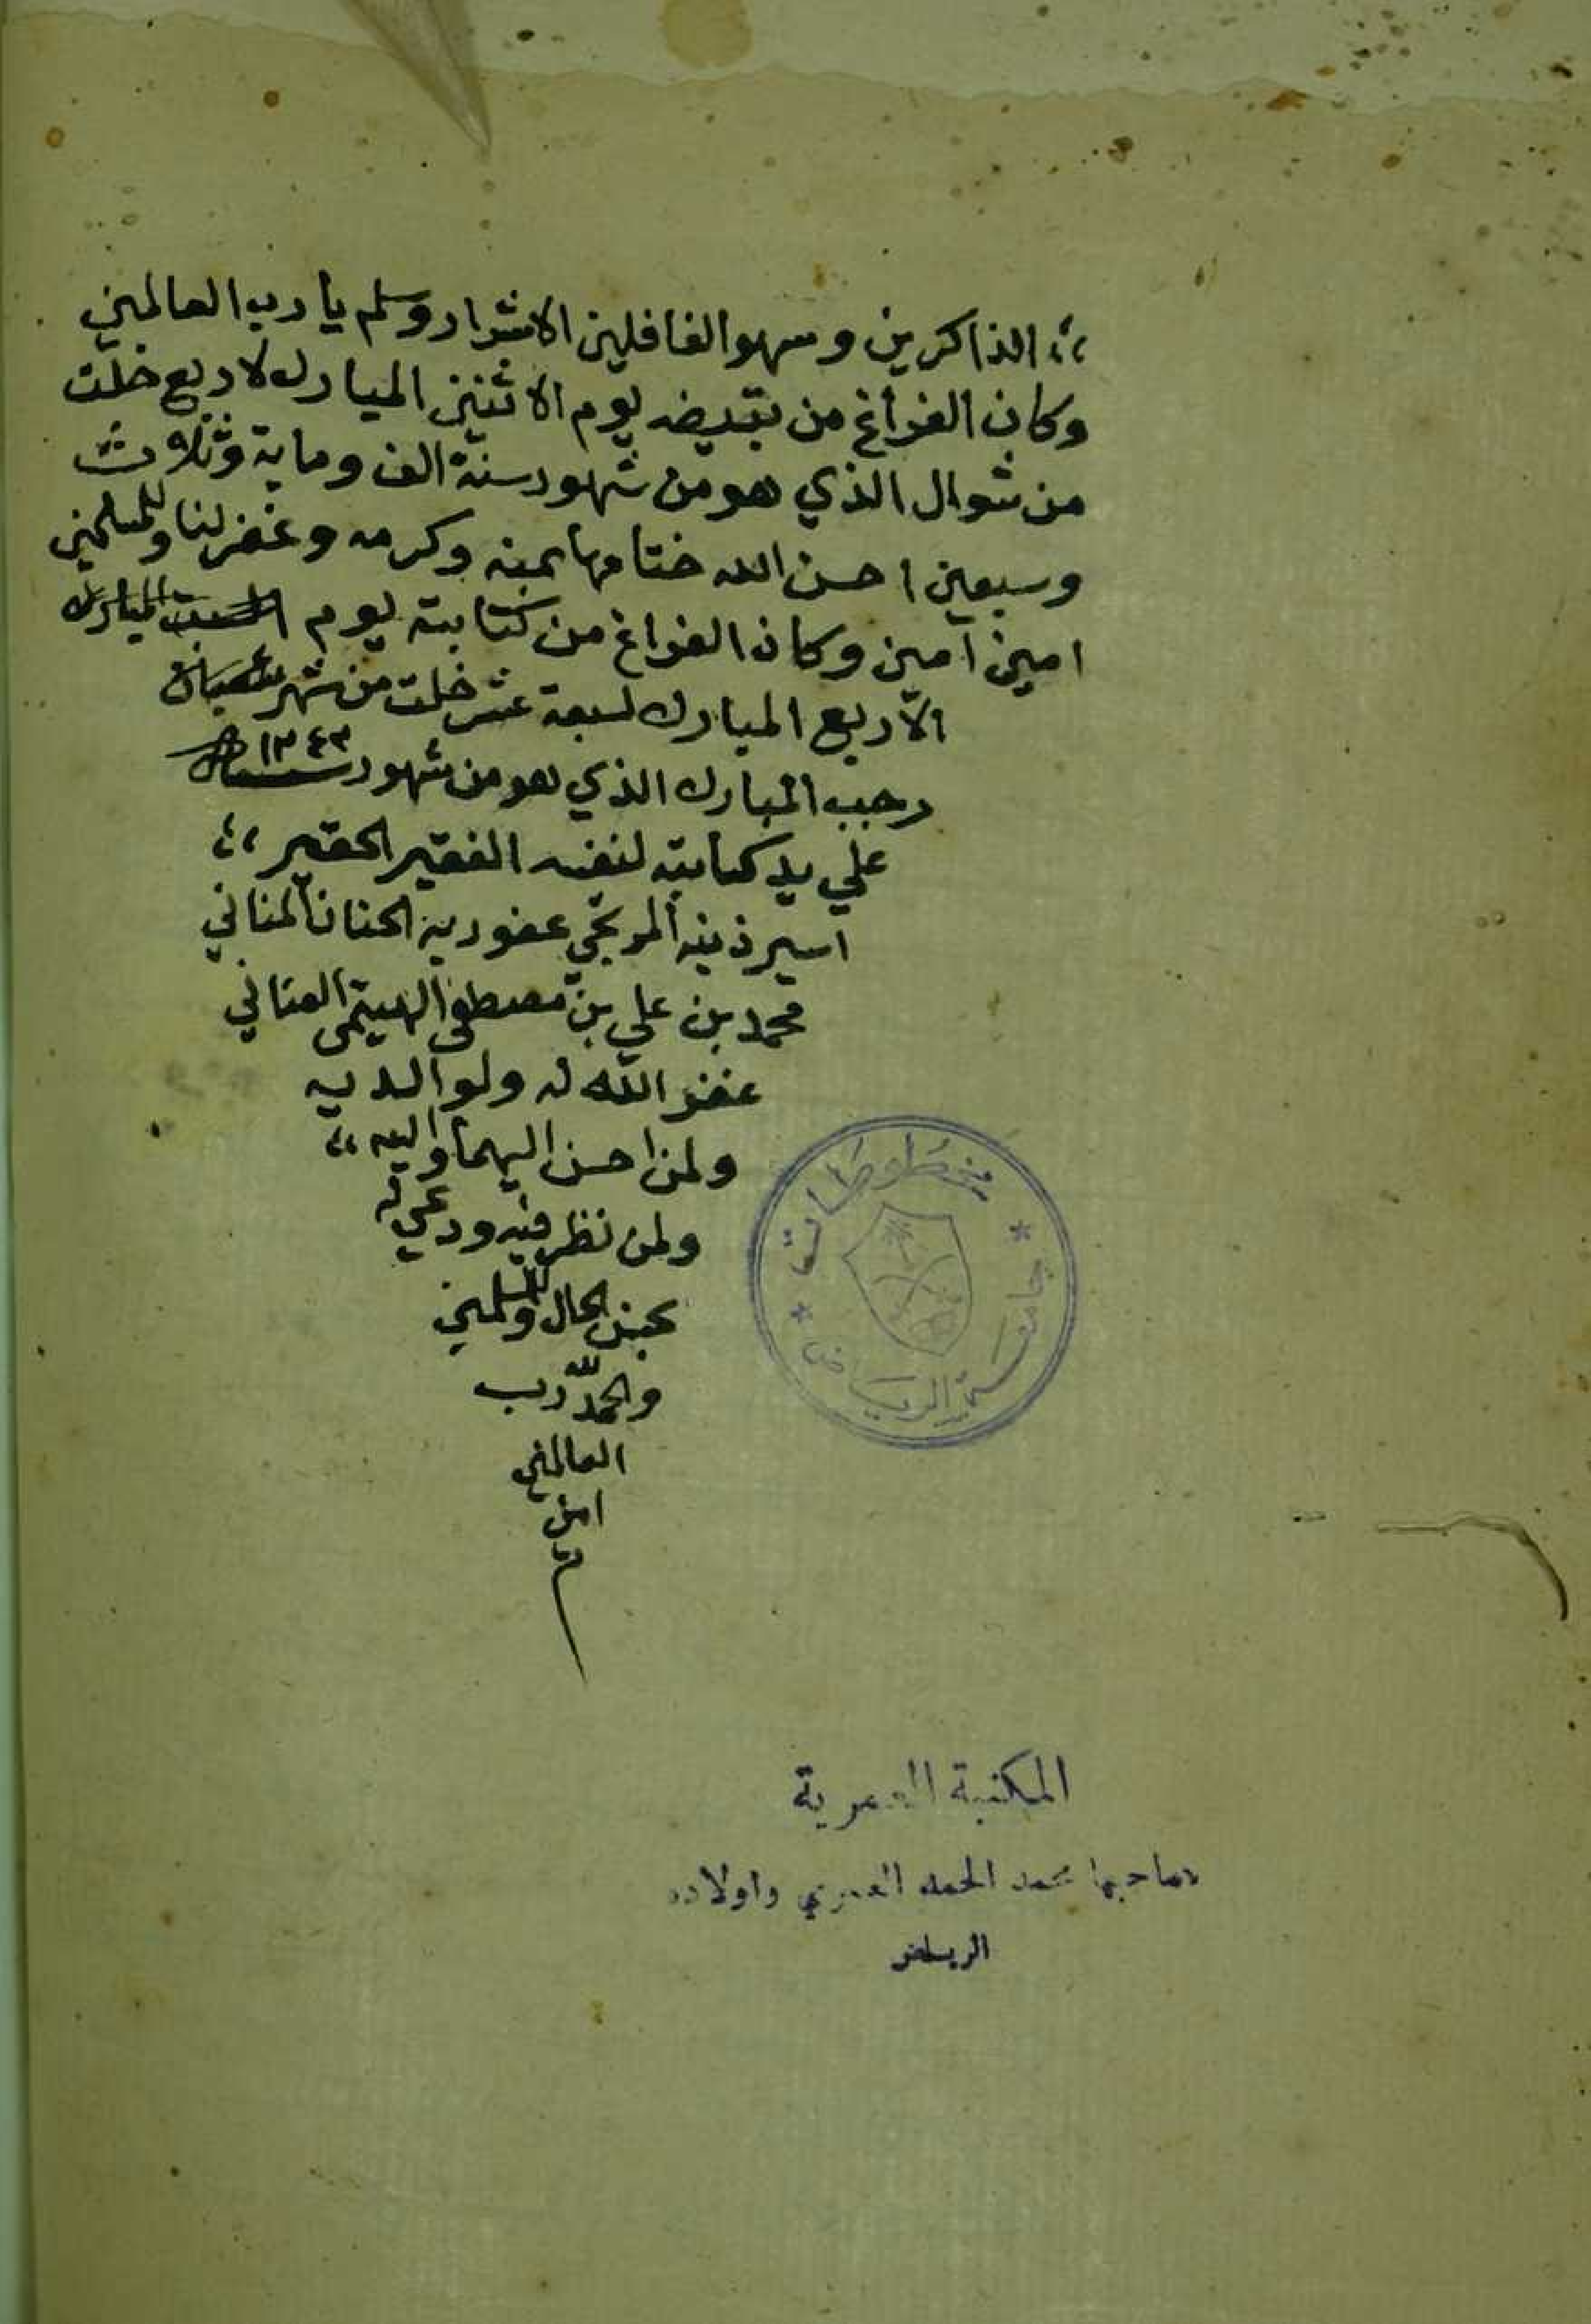 الذاكرين وسهو الغافلين الاشرار وسلم يا رب العالمين
وكان الفراغ من تبييضه يوم الاثنين المبارك لاربع خلت
من شوال الذي هو من شهور سنة الف وماية وثلاث
وسبعين احسن الله ختامها بمنه وكرمه وغفر لنا وللمسلمين
امين امين وكان الفراغ من كتابته يوم السبت المبارك
الاربع المبارك لسبعة عشر خلت من شهر شعبان
رجب المبارك الذي هو من شهور سنة ١٢٤٣
علي يد كتابته لنفسه الفقير الحقير
اسير ذنبه المرتجي عفو ربه الحنان المناني
محمد بن علي بن مصطفى الهيتمى العناني
غفر الله له ولوالديه
ولمن احسن اليهما واليه
ولمن نظر فيه ودعي له
بحسن الحال وللمسلمين
والحمد لله رب
العالمين
امين
مخطوطات
جامعة الرياض
المكتبة العمرية
صاحبها محمد الحمد العمري واولاده
الرياض